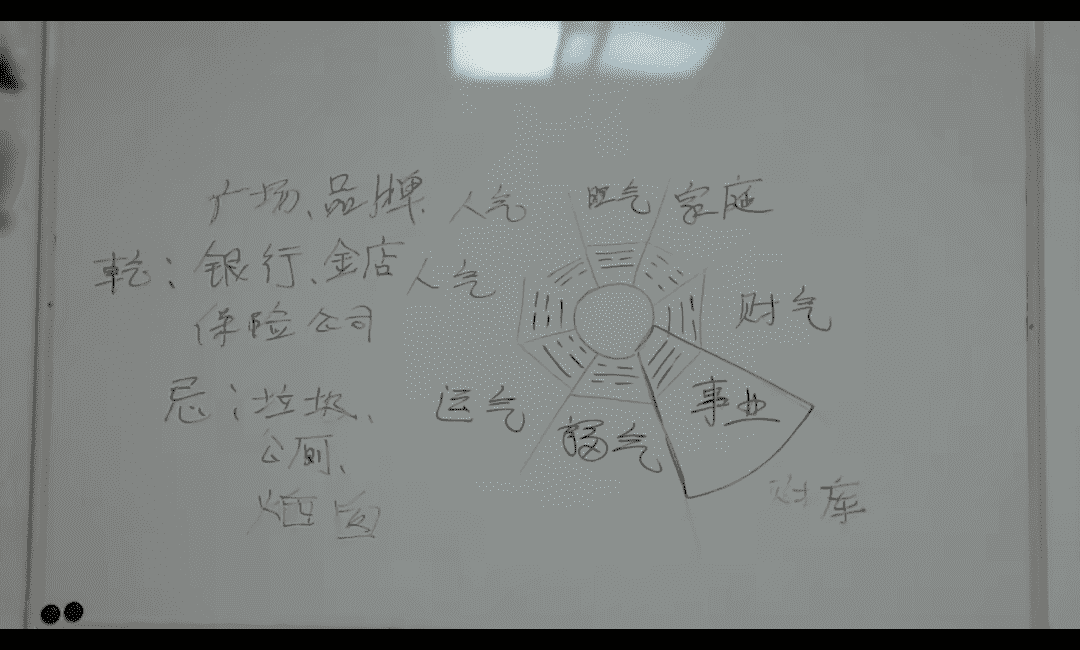 广场、品牌、人气
旺气
家庭
乾：银行、金店
人气
保险公司
财气
忌：垃圾、
运气
事业
公厕、
福气
烟囱
财库